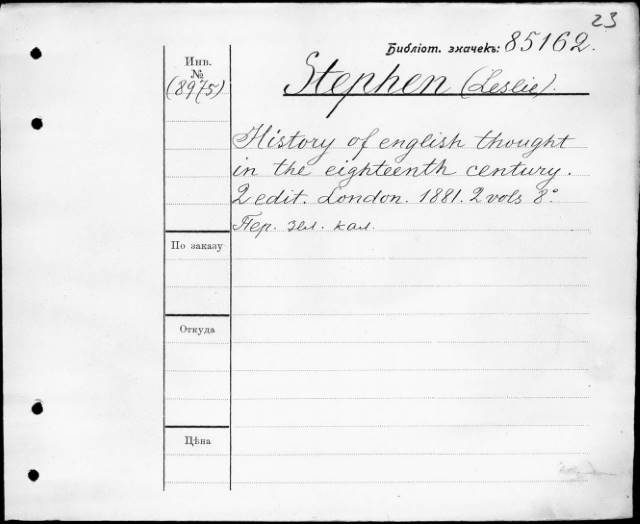 23
Библіот. значекъ: 85162.
Инв.
№
(8975)
Stephen (Leslie).
History of english thought
in the eighteenth century.
2 edit. London. 1881. 2 vols 8°
Пер. зел. кал.
По заказу
Откуда
Цѣна